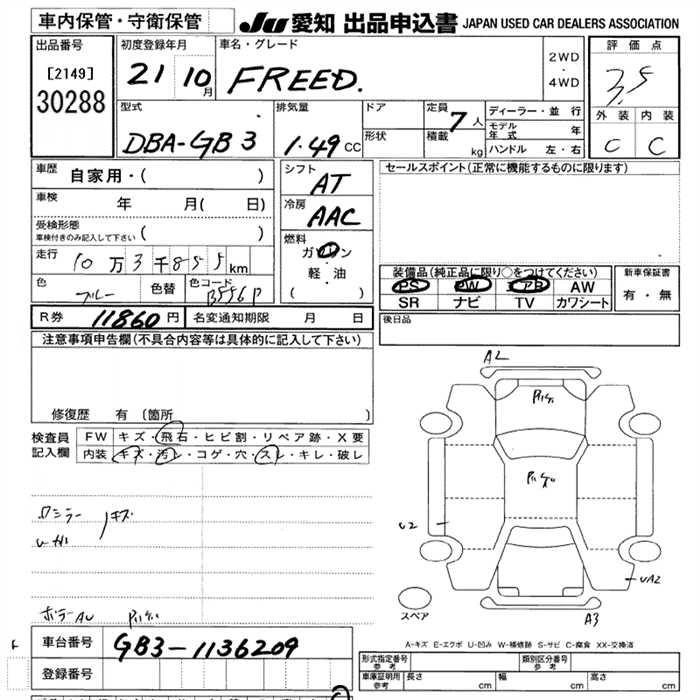 車内保管・守衛保管
JU 愛知 出品申込書 JAPAN USED CAR DEALERS ASSOCIATION
出品番号
[2149]
30288
初度登録年月
21 10月
車名・グレード
FREED.
2WD
・
4WD
評価点
3.5
外装 内装
C C
型式
DBA-GB3
排気量
1.49 CC
ドア
形状
定員 7 人
積載 kg
ディーラー・並行
モデル年式 年
ハンドル 左・右
車歴 自家用・( )
車検 年 月( 日)
受検形態
車検付きのみ記入して下さい ( )
走行 10万3千855km
色 ブルー 色替 色コード B556P
シフト
AT
冷房
AAC
燃料
ガソリン
軽・油
( )
セールスポイント(正常に機能するものに限ります)
装備品(純正品に限り○をつけてください)
PS PW エアB AW
SR ナビ TV カワシート
新車保証書
有・無
後日品
R券 11860円 名変通知期限 月 日
注意事項申告欄(不具合内容等は具体的に記入して下さい)
修復歴 有 〔箇所 〕
検査員記入欄
FW キズ・飛石・ヒビ割・リペア跡・X要
内装 キズ・汚レ・コゲ・穴・スレ・キレ・破レ
キズ
A2
U2
UA2
A3
スペア
A-キズ E-エクボ U-凹み W-補修跡 S-サビ C-腐食 XX-交換済
車台番号 GB3-1136209
登録番号
形式指定番号 参考
類別区分番号 参考
車庫証明用 参考 長さ cm 幅 cm 高さ cm